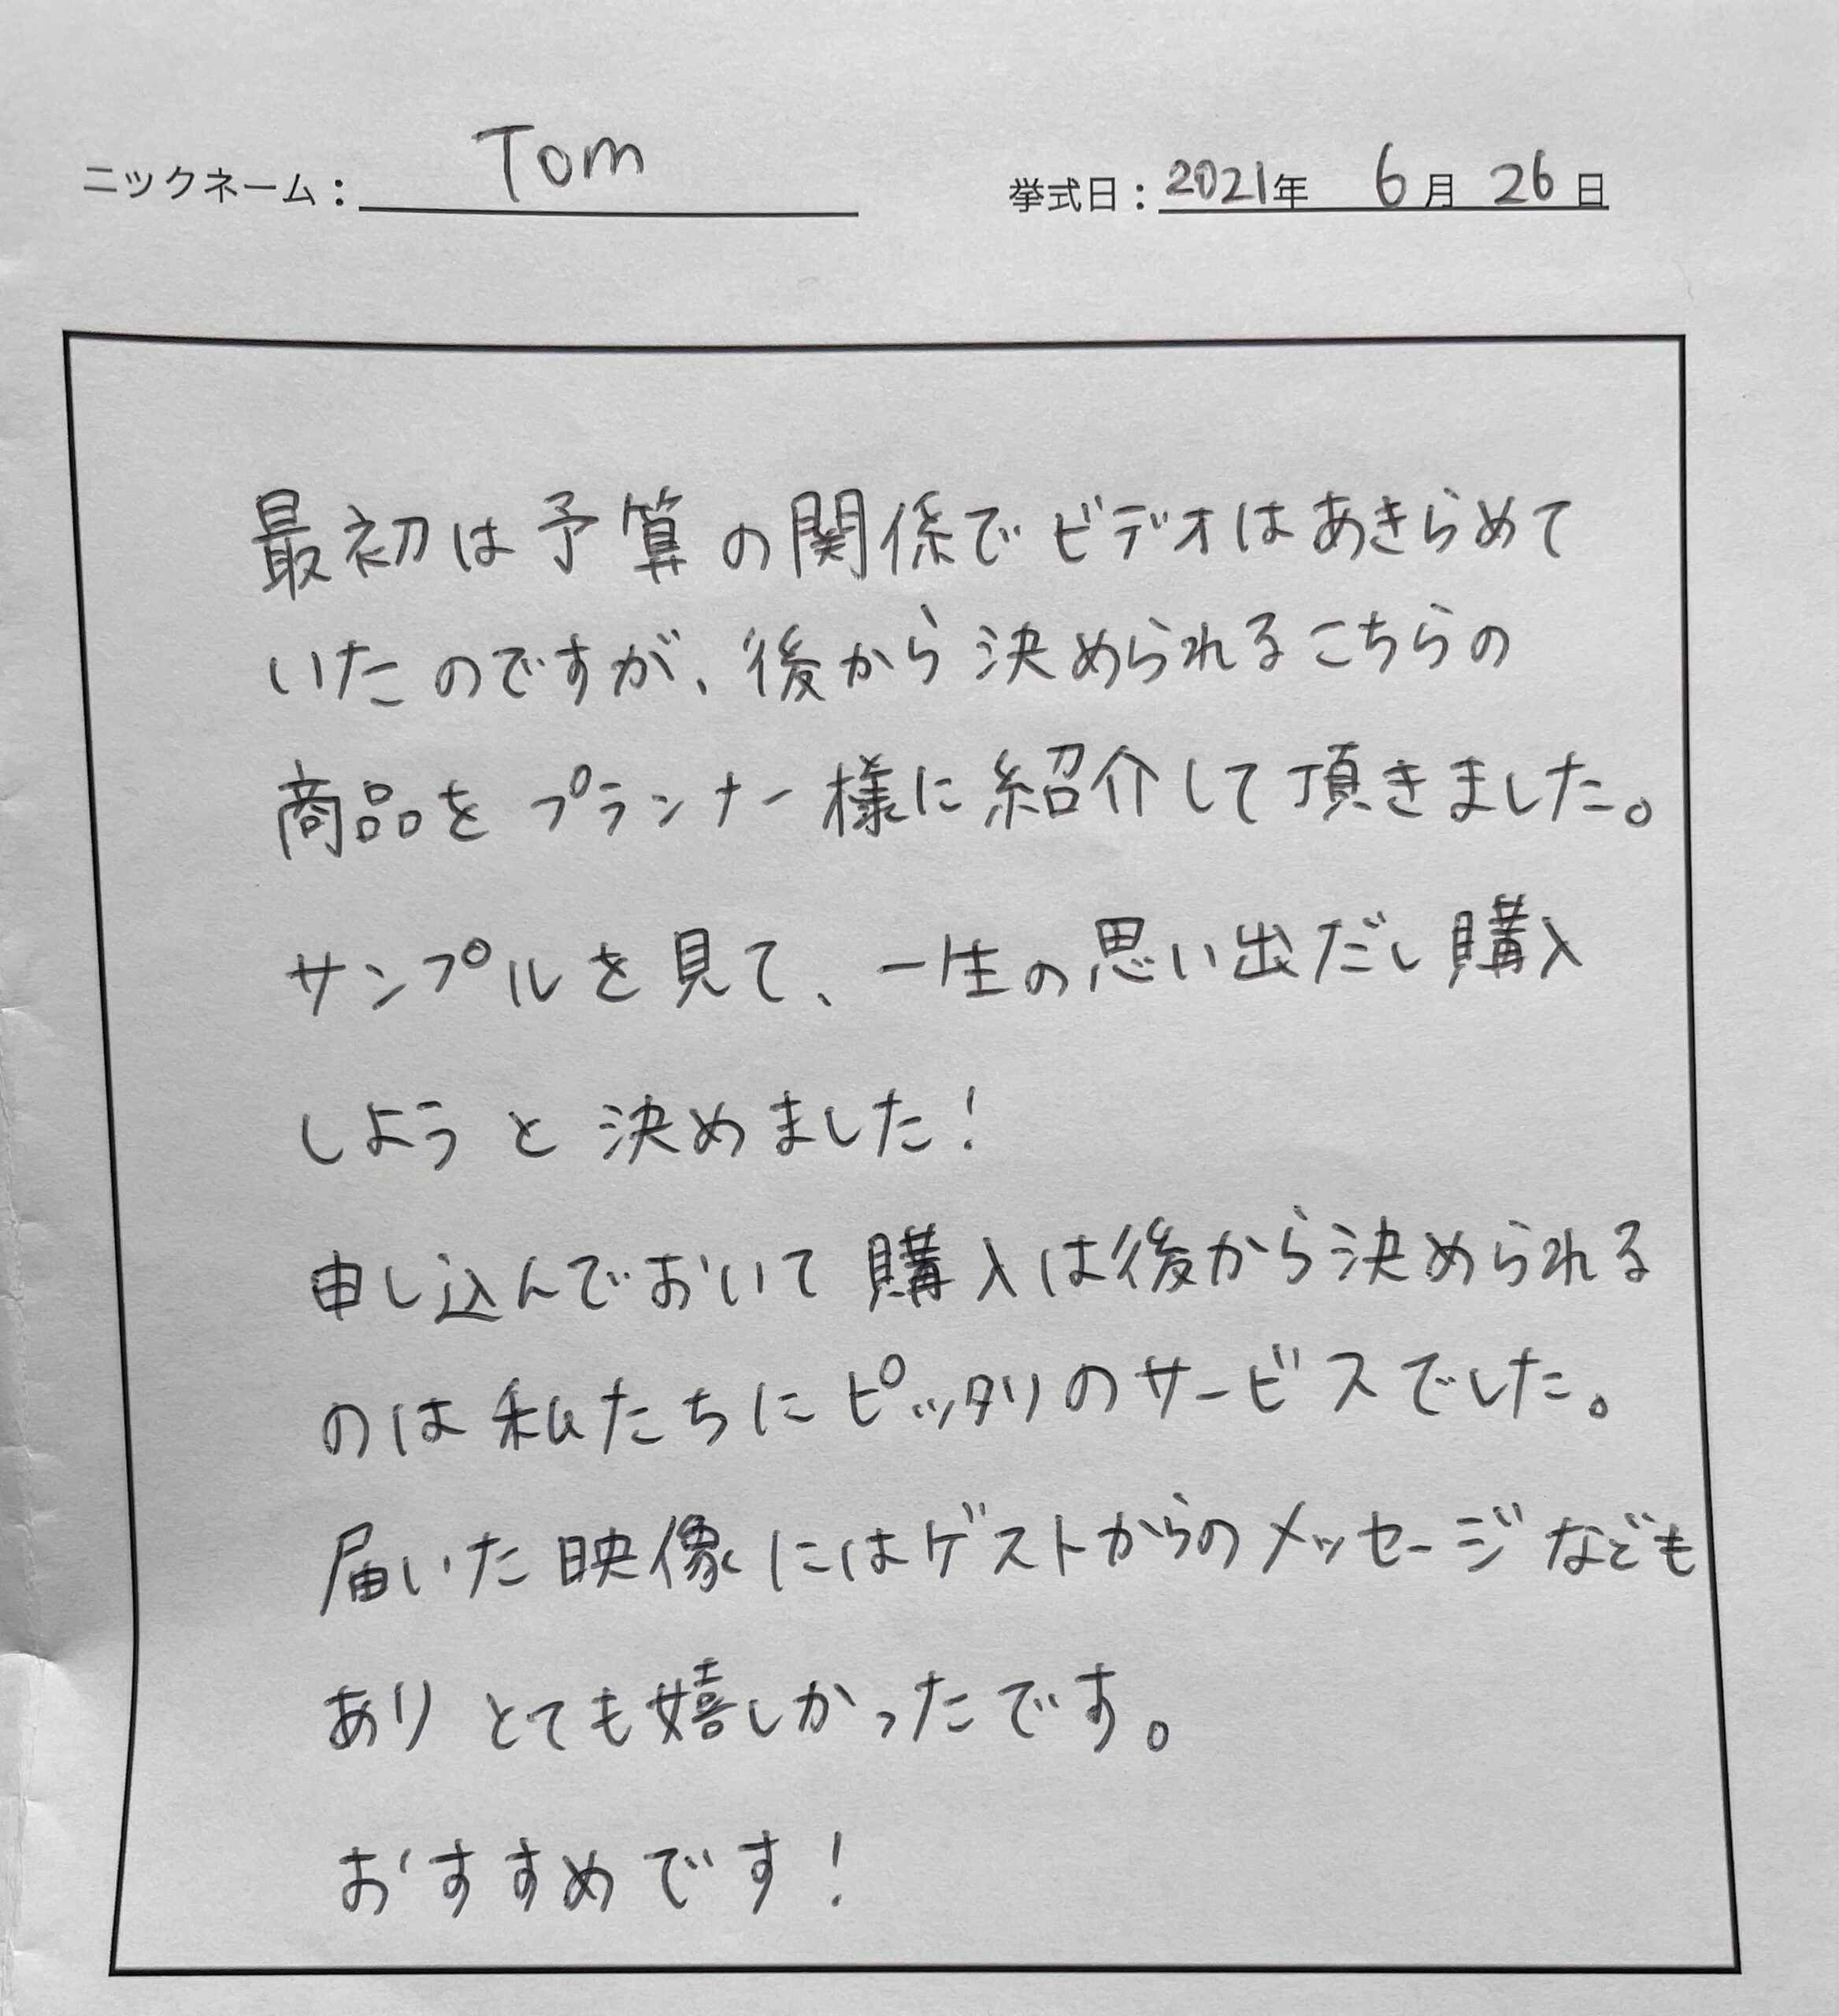 ニックネーム： Tom 挙式日：2021年 6月 26日
最初は予算の関係でビデオはあきらめて
いたのですが、後から決められるこちらの
商品をプランナー様に紹介して頂きました。
サンプルを見て、一生の思い出だし購入
しようと決めました！
申し込んでおいて購入は後から決められる
のは私たちにピッタリのサービスでした。
届いた映像にはゲストからのメッセージなども
ありとても嬉しかったです。
おすすめです！